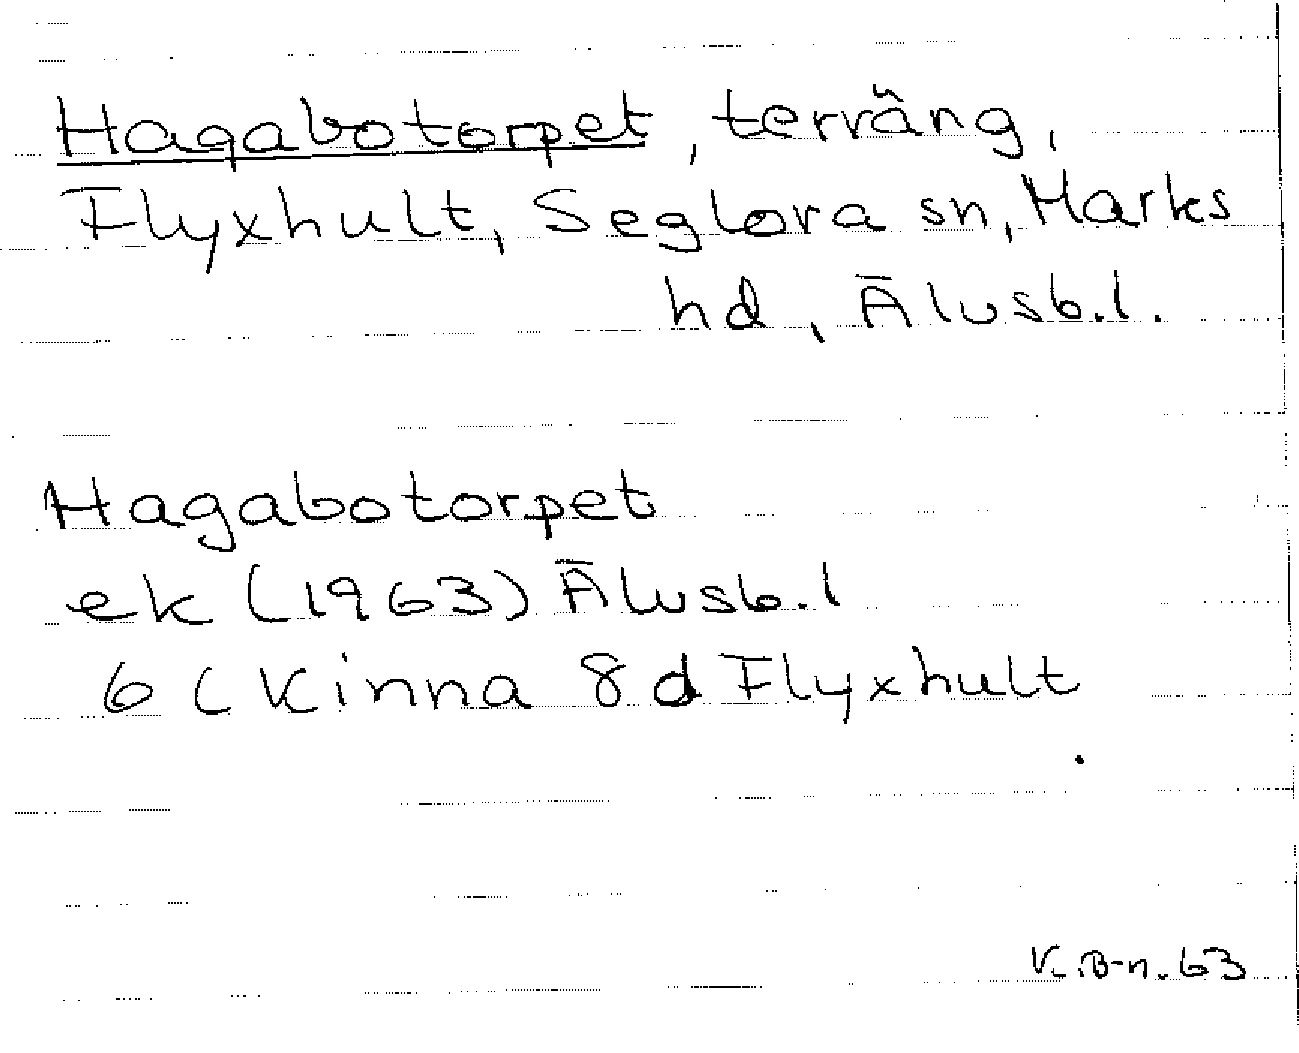 Hagabotorpet, terräng,
Flyxhult, Seglora sn, Marks
hd, Älvsb.l.
Hagabotorpet
ek (1963) Älvsb.l
6 C Kinna 8 d Flyxhult
K.B-n. 63